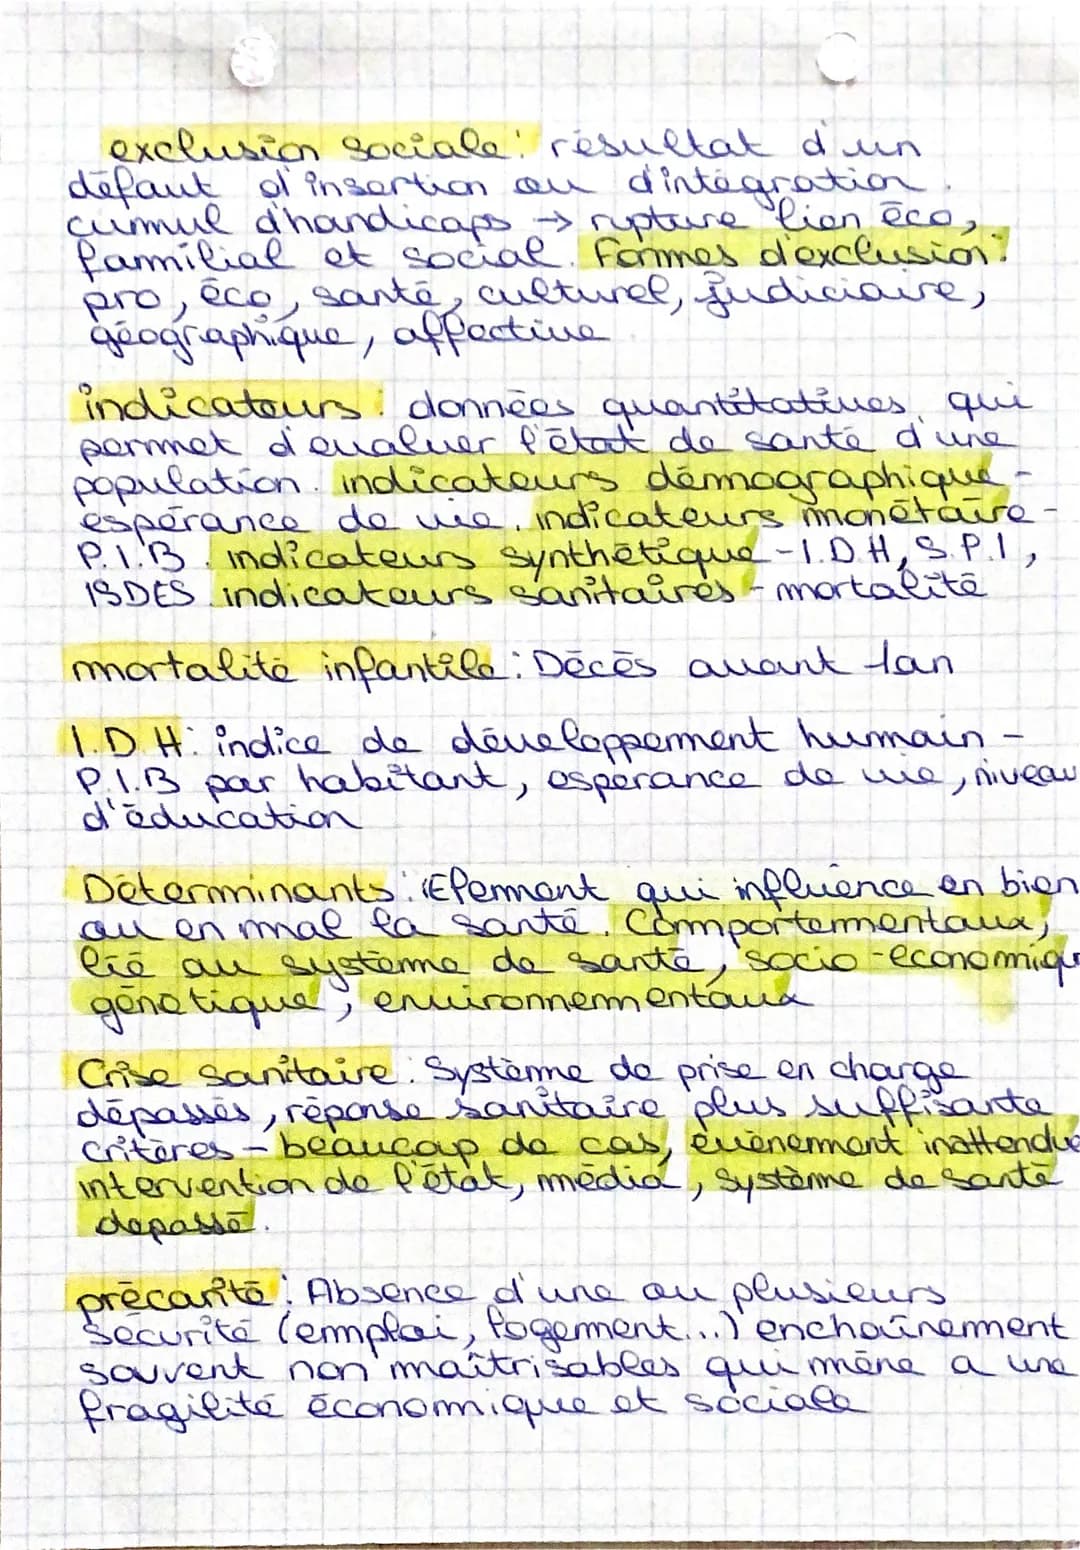 exclusion sociale : résultat d'un
défaut d'insertion ou d'intégration.
cumul d'handicaps → rupture lien éco,
familial et social. Formes d'exclusion :
pro, éco, santé, culturel, judiciaire,
géographique, affective
indicateurs : données quantitatives, qui
permet d'evaluer l'état de santé d'une
population. indicateurs démographique -
espérance de vie, indicateurs monétaire -
P.I.B. indicateurs synthétique - I.D.H, S.P.I,
ISDES indicateurs sanitaires - mortalité
mortalité infantile : Décés avant 1an
I.D.H : indice de développement humain -
P.I.B par habitant, esperance de vie, niveau
d'éducation
Déterminants : Element qui influence en bien
ou en mal la santé. Comportementaux,
lié au système de santé, socio-economiqu
génetique, environnementaux
Crise sanitaire : Système de prise en charge
dépassés, réponse sanitaire plus suffisante
critères - beaucoup de cas, évènement inattendue
intervention de l'état, média, système de santé
depassé.
précarité : Absence d'une ou plusieurs
sécurité (emploi, logement...) enchaînement
souvent non maîtrisables qui mène a une
fragilité économique et sociale